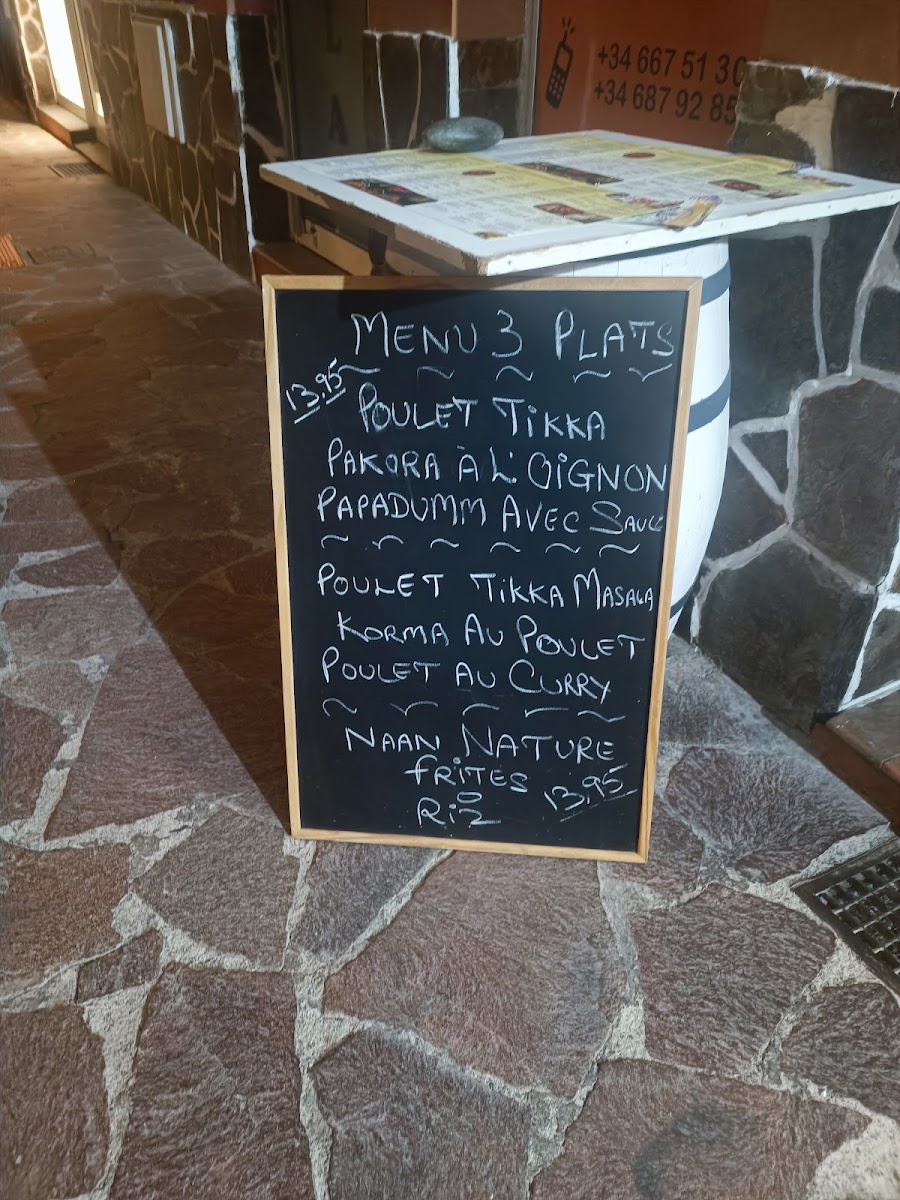 +34 667 51 30
+34 687 92 85
MENU 3 PLATS
13,95
POULET TIKKA
PAKORA À L'OIGNON
PAPADUMM AVEC SAUCE
POULET TIKKA MASALA
KORMA AU POULET
POULET AU CURRY
NAAN NATURE
FRITES
O
RIZ
13,95